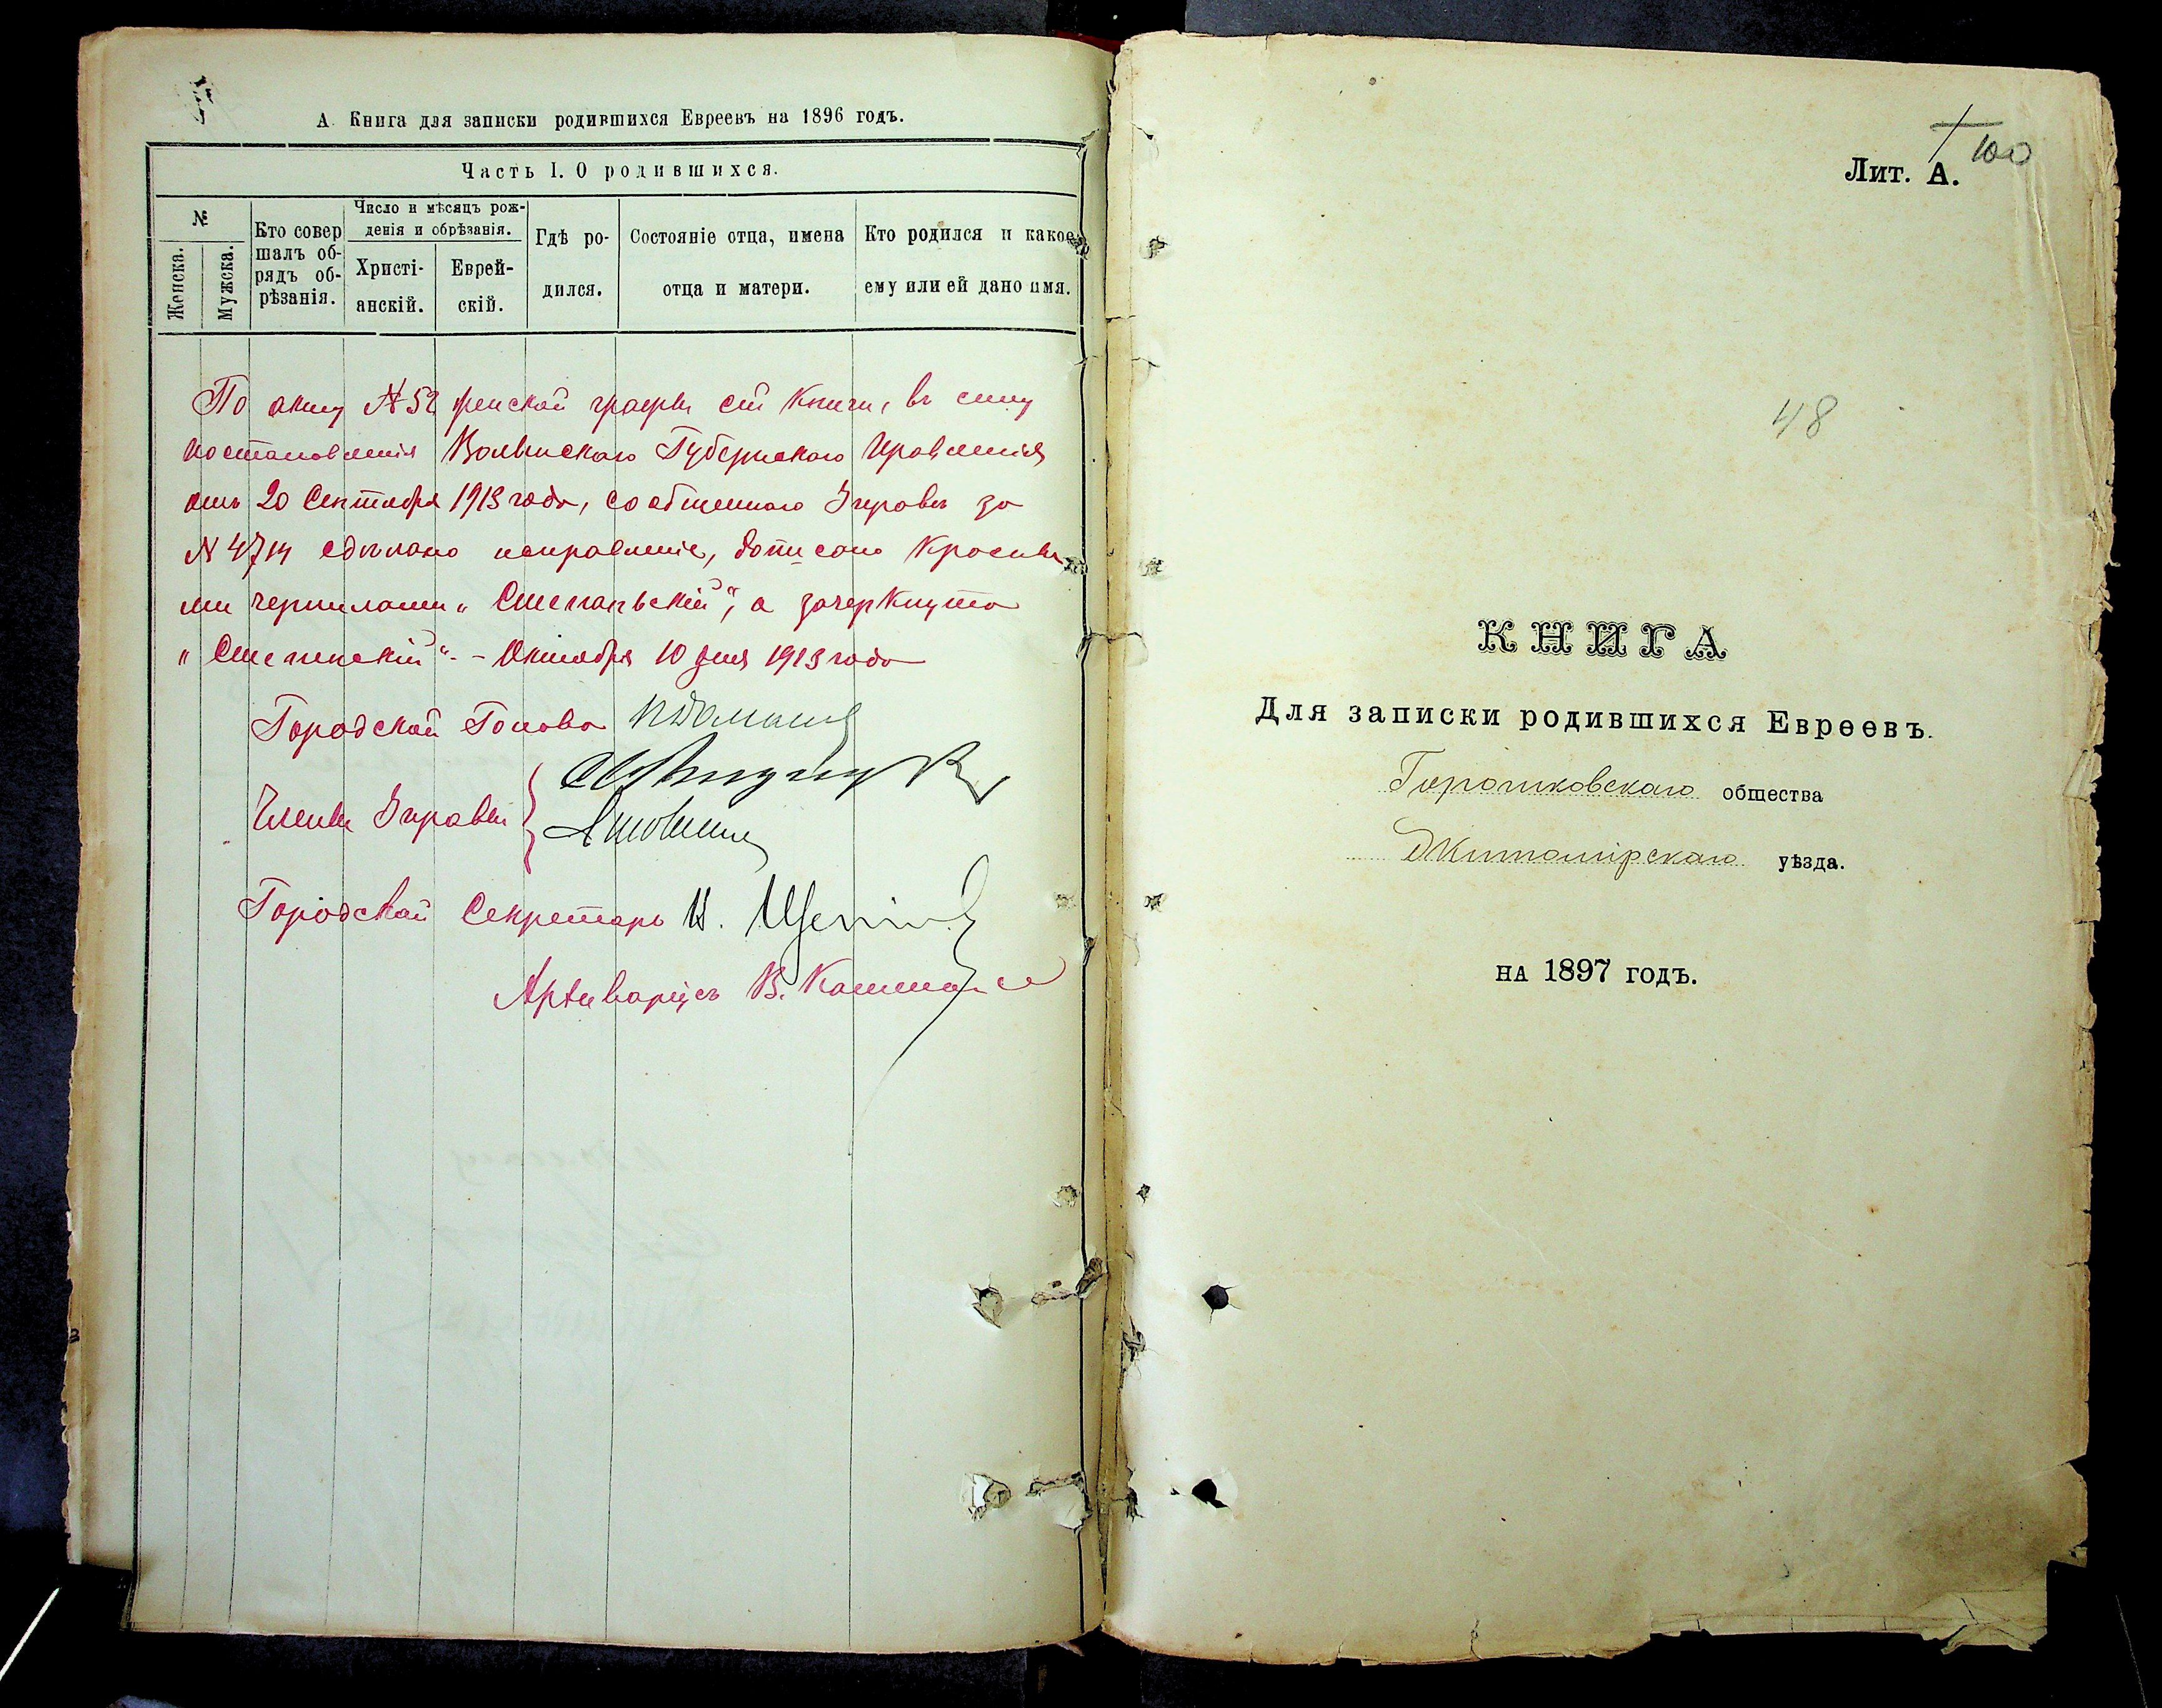 А. Книга для записки родившихся Евреевъ на 1896 годъ.
Часть I. О родившихся.
№
Женска.
Мужска.
Кто совер
шалъ об-
рядъ об-
рѣзанія.
Число и мѣсяцъ рож-
денія и обрѣзанія.
Христі-
анскій.
Еврей-
скій.
Гдѣ ро-
дился.
Состояніе отца, имена
отца и матери.
Кто родился и какое
ему или ей дано имя.
По акту №52 женской графы сей книги, въ силу
постановленія Волынскаго Губернскаго Правленія
отъ 20 Сентября 1913 года, сообщеннаго Управѣ за
№ 4714 сдѣлано исправленіе, дописано красны
ми чернилами „Степанскій", а зачеркнуто
„Степенскій". - Октября 10 дня 1913 года
Городской Голова
Члены Управы
Городской Секретарь И.
Архиваріусъ В.
Лит. А.
100
48
КНИГА
Для записки родившихся Евреевъ.
Горошковскаго общества
Житомірскаго уѣзда.
на 1897 годъ.